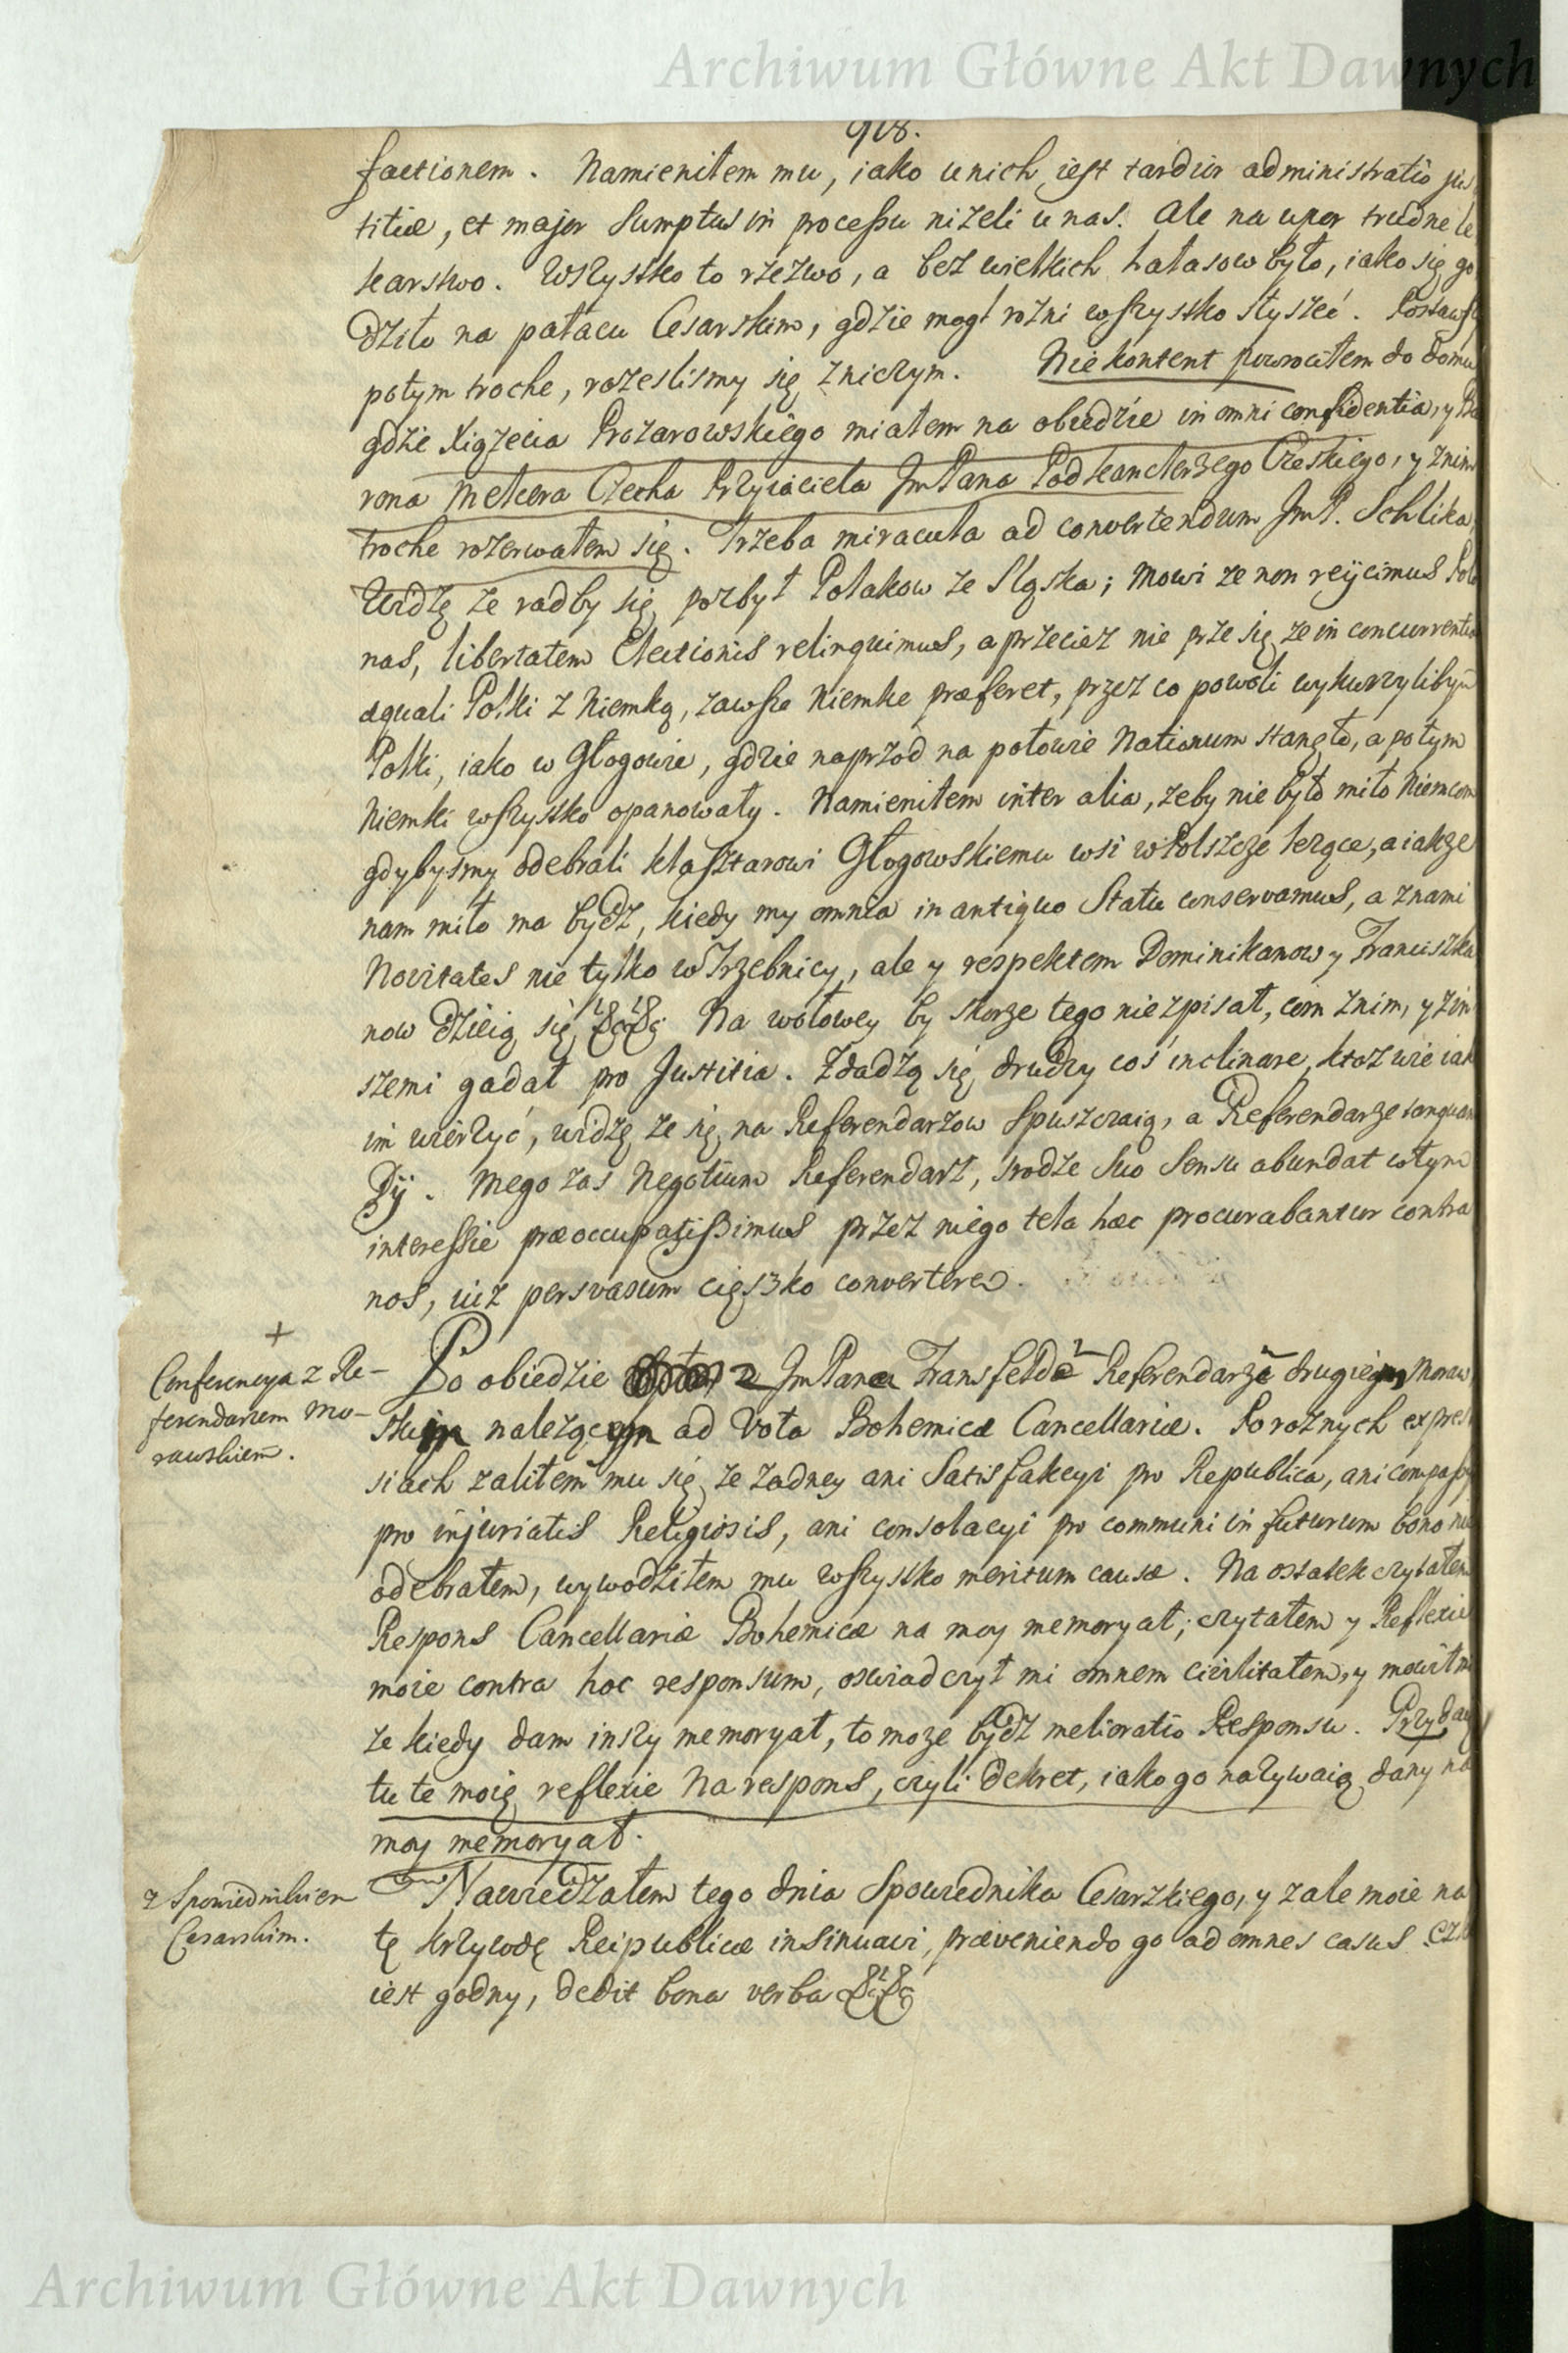 Archiwum Główne Akt Dawnych
918.
factionem. Namieniłem mu, iako unich iest tardior administratio jus
titiæ, et major Sumptus in processu niżeli u nas. Ale na upor trudne le
karstwo. Wszystko to rzezwo, a bez wielkich hałasow było, iako się go
dziło na pałacu Cesarskim, gdzie mogł rożni wszystko słyszeć. Postawszy
potym troche, rozeslismy się z niczym. Nie kontent powrociłem do domu
gdzie Xiązecia Prozorowskiego miałem na obiedzie in omni confidentia, y Ba
rona Metcera Czecha Przyiaciela JmPana Podkanclerzego Czeskiego, y znim
troche rozerwałem się. Trzeba miracula ad convertendum JmP. Schlika,
Widzę że radby się pozbył Polakow ze Sląska; mowi ze non reijcimus Polo
nas, libertatem Electionis relinquimus, a przeciez nie prze się ze in concurrentia
æquali Polki z Niemką, zawsze Niemke præferet, przez co powoli wykurzyliby
Polki, iako w Głogowie, gdzie naprzod na połowie Nationum stanęło, a potym
Niemki wszystko opanowały. Namieniłem inter alia, zeby nie było miło Niemcom
gdybysmy odebrali klasztorowi Głogowskiemu wsi w Polszcze leżące, a iakze
nam miło ma bydz, kiedy my omnia in antiquo Statu conservamus, a znami
Novitates nie tylko w Trzebnicy, ale y respektem Dominikanow y Franciszka
now dzieią się &c &c. Na wołowey by skorze tego nie zpisał, com znim, y zin
szemi gadał pro Justitia. Zdadzą się drudzy coś inclinare, ktoz wie iak
im wierzyć, widzę ze się na Referendarzow Spuszczaią, a Referendarze tanquam
Dij. Mego zas Negotium Referendarz, srodze suo Sensu abundat w tym
interessie præoccupatissimus przez niego tela hæc procurabantur contra
nos, iuż persvasum cięszko convertere.
+
Conferencya z Re-
ferendarzem Mo-
rawskiem.
Po obiedzie JmPana Fransfelda Referendarza drugiego Moraw
skim należącym ad Vota Bohemicæ Cancellariæ. Po rożnych expres
siach zaliłem mu się ze żadney ani Satisfakcyi pro Republica, ani compassyi
pro injuriatis Religiosis, ani consolacyi pro communi in futurum bono nie
odebrałem, wywodziłem mu wszystko meritum causæ. Na ostatek czytałem
Respons Cancellariæ Bohemicæ na moy memoryał; czytałem y Reflexie
moie contra hoc responsum, oswiadczył mi omnem civilitatem, y mowił mi
ze kiedy dam inszy memoryał, to moze bydź melioratio Responsu. Przydaię
tu te moię reflexie Na respons, czyli Dekret, iako go nazywaią, dany na
moy memoryał.
z Spowiednikiem
Cesarskim.
Nawiedzałem tego dnia Spowiednika Cesarzkiego, y zale moie na
tę krzywdę Reipublicæ insinuavi, præveniendo go ad omnes casus
iest godny, dedit bona verba &c &c
Archiwum Główne Akt Dawnych